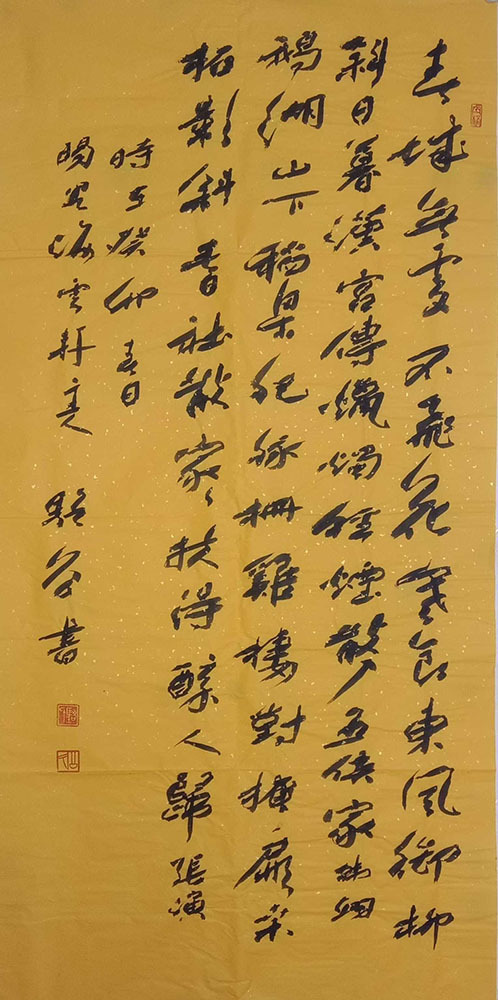 春城無處不飛花寒食東風御柳
斜日暮漢宮傳蠟燭輕煙散入五侯家韓翃
鵝湖山下稻粱肥豚柵雞棲對掩扉桑
柘影斜春社散家〻扶得醉人歸張演
時在癸卯春日
海雲軒 書